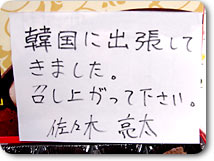 韓国に出張して
きました。
召し上がって下さい。
佐々木 亮太